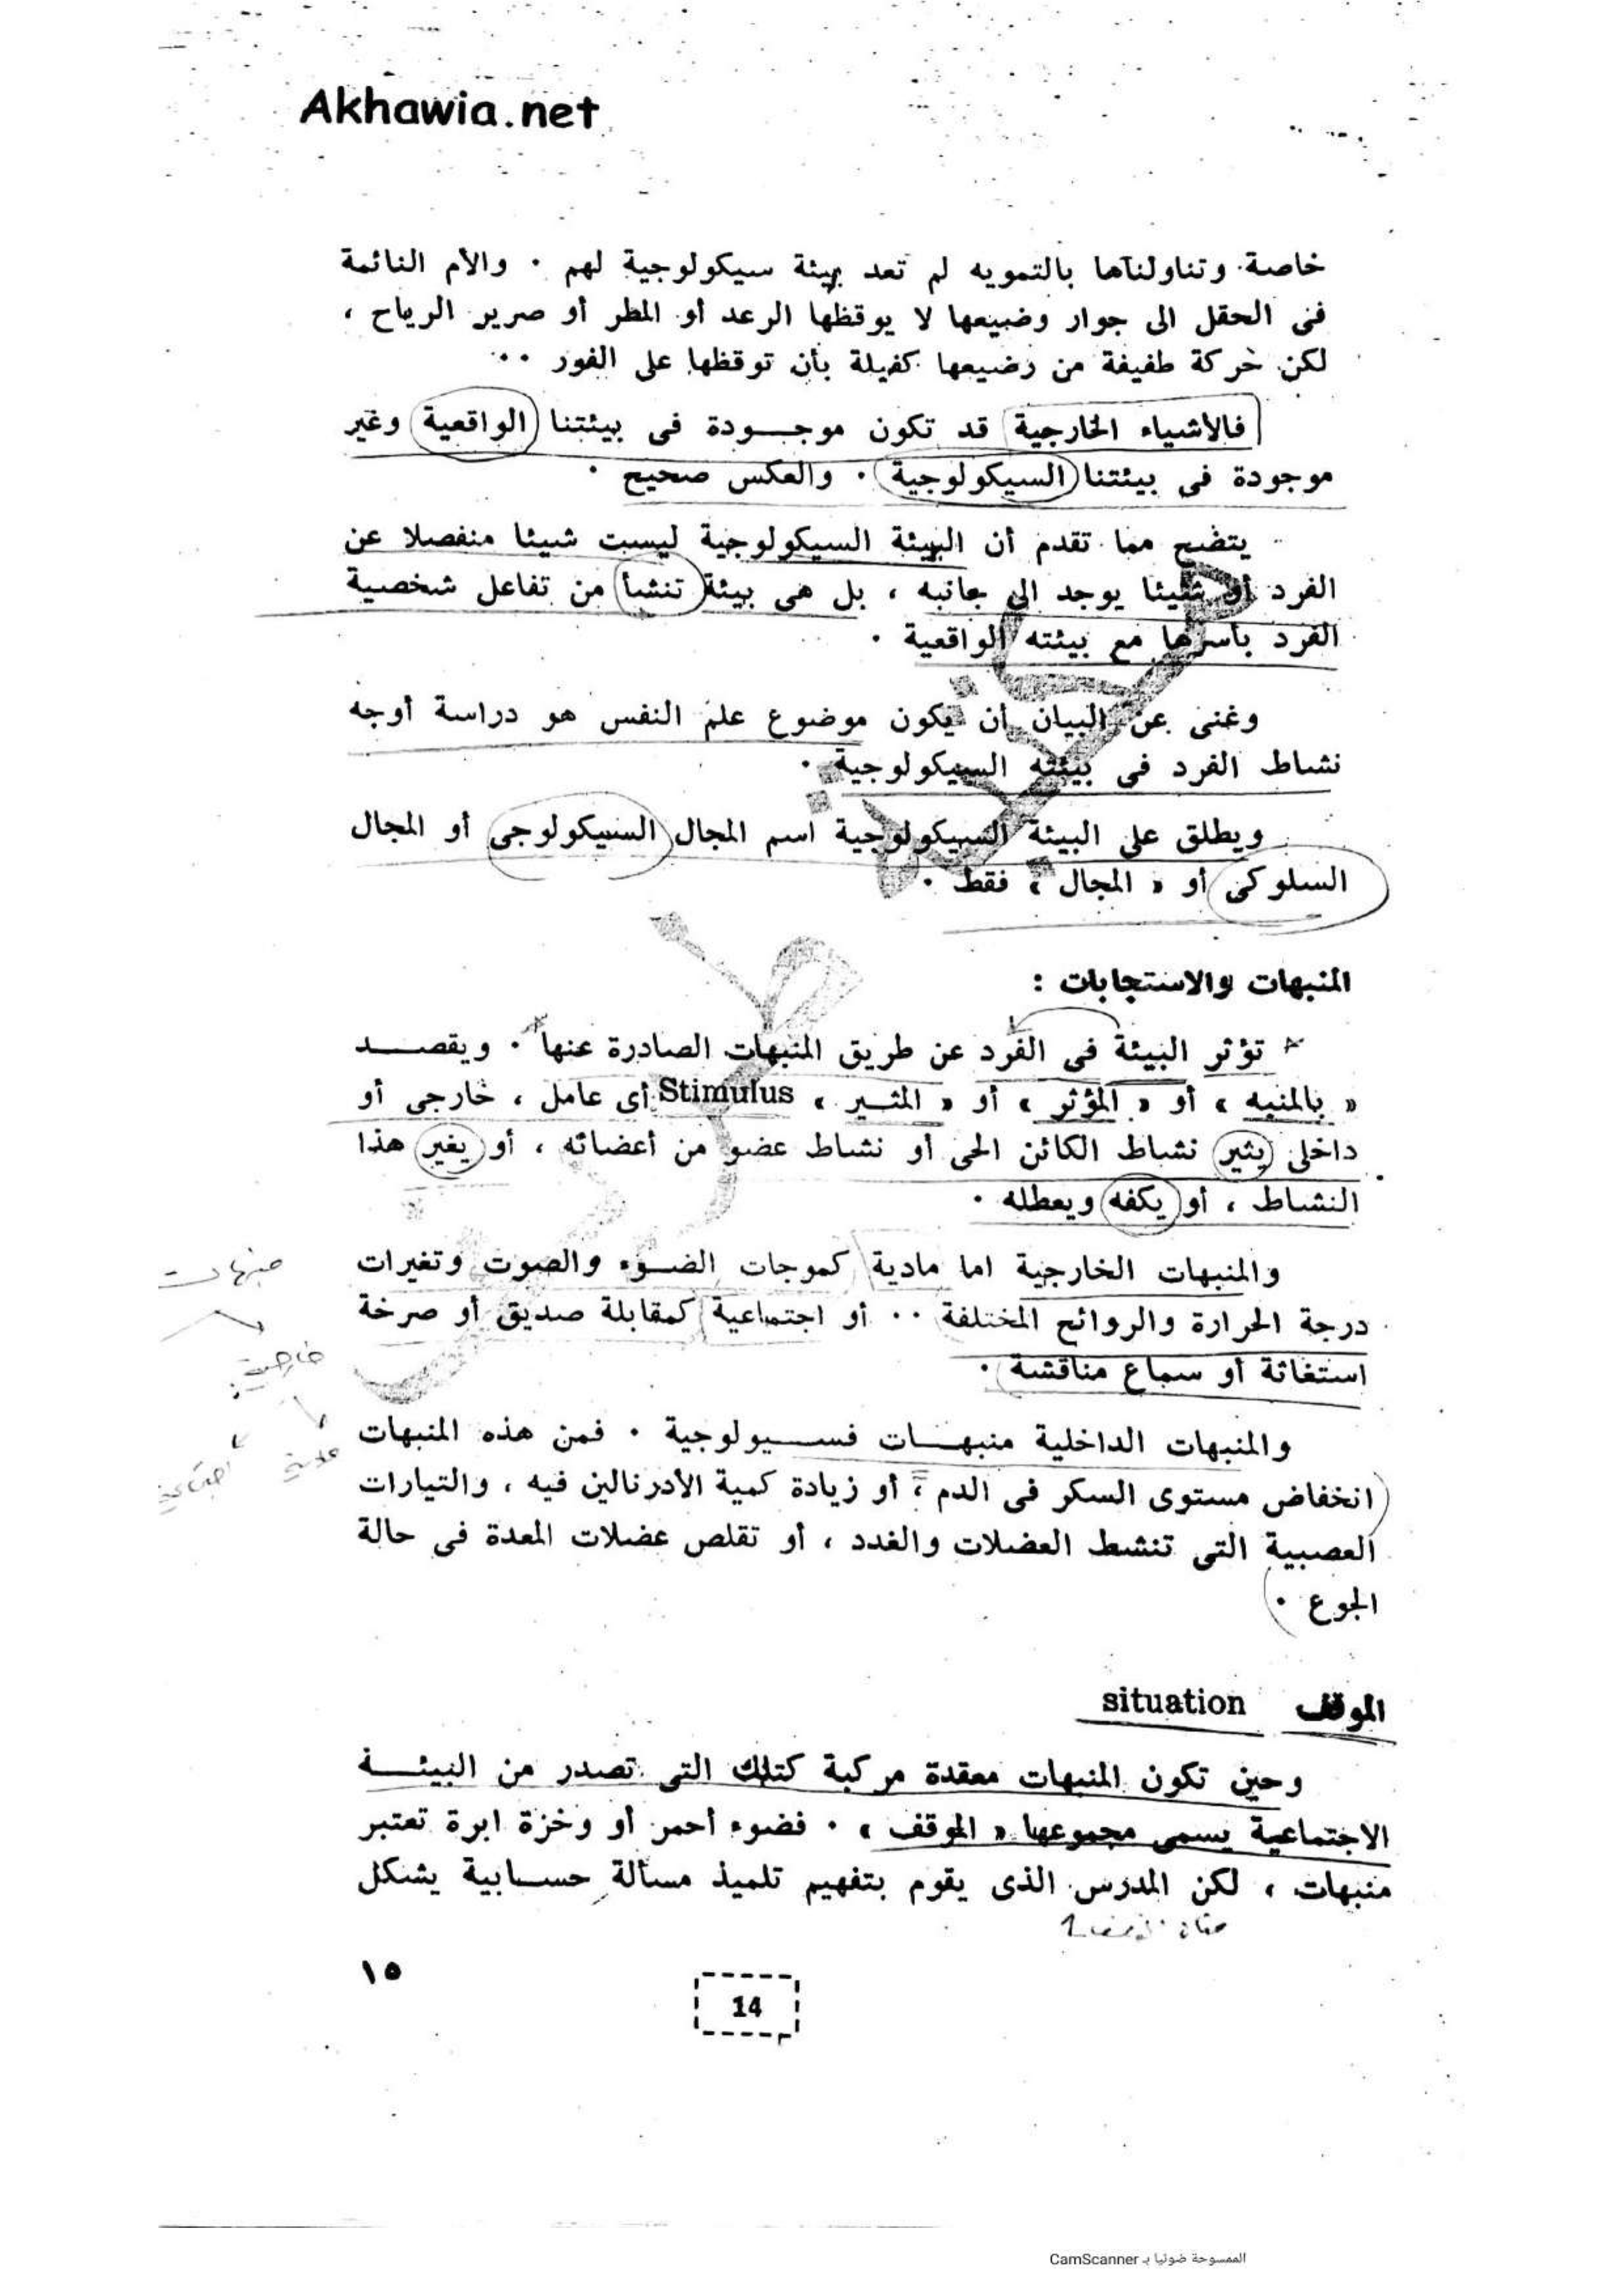 Akhawia.net
خاصة وتناولناها بالتمويه لم تعد بيئة سيكولوجية لهم . والأم النائمة
فى الحقل الى جوار وضيعها لا يوقظها الرعد أو المطر أو صرير الرياح ،
لكن حركة طفيفة من رضيعها كفيلة بأن توقظها على الفور ..
فالأشياء الخارجية قد تكون موجــودة فى بيئتنا الواقعية وغير
موجودة فى بيئتنا السيكولوجية . والعكس صحيح .
يتضح مما تقدم أن البيئة السيكولوجية ليست شيئا منفصلا عن
الفرد أو شيئا يوجد الى جانبه ، بل هى بيئة تنشأ من تفاعل شخصية
الفرد بأسرها مع بيئته الواقعية .
وغنى عن البيان أن يكون موضوع علم النفس هو دراسة أوجه
نشاط الفرد فى بيئته السيكولوجية .
ويطلق على البيئة السيكولوجية اسم المجال السيكولوجى أو المجال
السلوكى أو « المجال » فقط .
المنبهات والاستجابات :
تؤثر البيئة فى الفرد عن طريق المنبهات الصادرة عنها . ويقصــد
« بالمنبه » أو « المؤثر » أو « المثــير » Stimulus أى عامل ، خارجى أو
داخلى يثير نشاط الكائن الحى أو نشاط عضو من أعضائه ، أو يغير هذا
النشاط ، أو يكفه ويعطله .
والمنبهات الخارجية اما مادية كموجات الضــوء والصوت وتغيرات
درجة الحرارة والروائح المختلفة .. أو اجتماعية كمقابلة صديق أو صرخة
استغاثة أو سماع مناقشة .
والمنبهات الداخلية منبهــات فســيولوجية . فمن هذه المنبهات
انخفاض مستوى السكر فى الدم ، أو زيادة كمية الأدرنالين فيه ، والتيارات
العصبية التى تنشط العضلات والغدد ، أو تقلص عضلات المعدة فى حالة
الجوع .
منبهات
خارجية
مادية
اجتماعية
الموقف situation
وحين تكون المنبهات معقدة مركبة كتلك التى تصدر من البيئــة
الاجتماعية يسمى مجموعها « الموقف » . فضوء أحمر أو وخزة ابرة تعتبر
منبهات ، لكن المدرس الذى يقوم بتفهيم تلميذ مسألة حســابية يشكل
١٥
14
الممسوحة ضوئيا بـ CamScanner